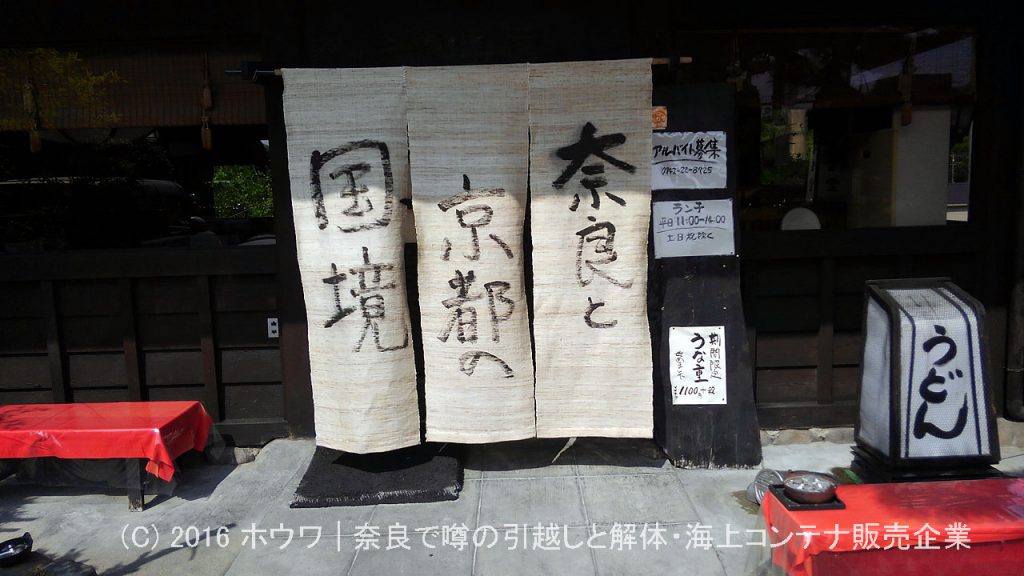 奈良と
京都の
国境
アルバイト募集
0742-22-8725
ランチ
平日11:00-14:00
土日祝除く
期間限定
うな重
1100円
うどん
(C) 2016 ホウワ | 奈良で噂の引越しと解体・海上コンテナ販売企業